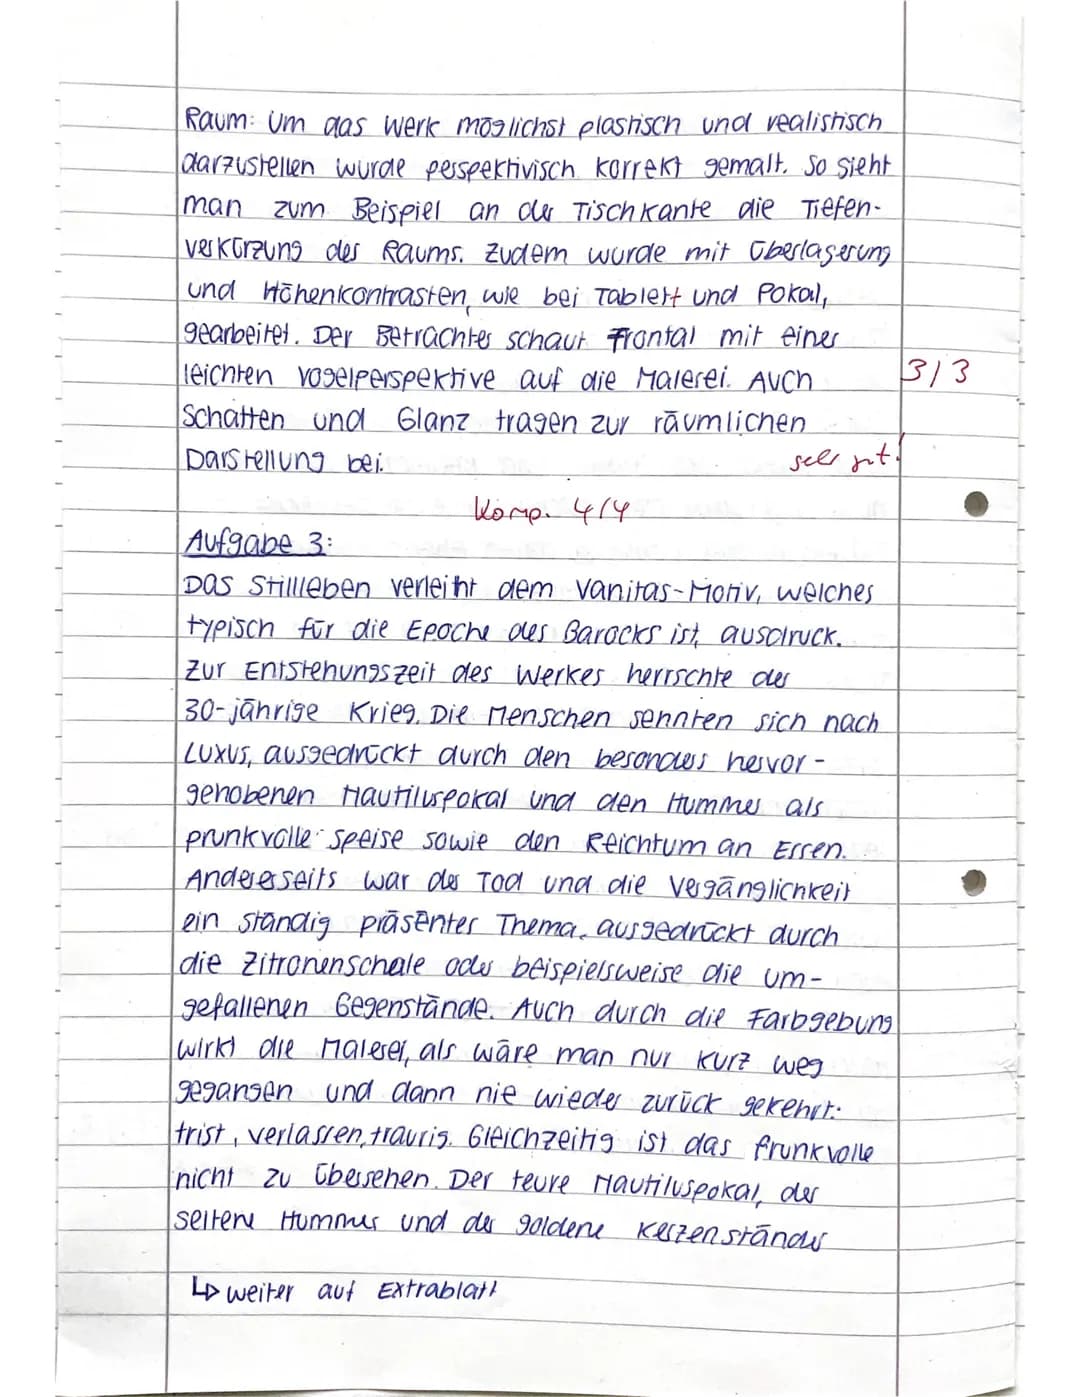 Raum: Um das Werk möglichst plastisch und realistisch
darzustellen wurde perspektivisch korrekt gemalt. So sieht
man zum Beispiel an der Tischkante die Tiefen-
verkürzung des Raums. Zudem wurde mit Überlagerung
und Höhenkontrasten, wie bei Tablett und Pokal,
gearbeitet. Der Betrachter schaut frontal mit einer
leichten Vogelperspektive auf die Malerei. Auch
3/3
Schatten und Glanz tragen zur räumlichen
Darstellung bei.
sehr gut!
Komp. 4/4
Aufgabe 3:
Das Stillleben verleiht dem Vanitas-Motiv, welches
typisch für die Epoche des Barocks ist, ausdruck.
Zur Entstehungszeit des Werkes herrschte der
30-jährige Krieg. Die Menschen sehnten sich nach
Luxus, ausgedrückt durch den besonders hervor-
gehobenen Nautiluspokal und den Hummer als
prunkvolle Speise sowie den Reichtum an Essen.
Andererseits war der Tod und die Vergänglichkeit
ein ständig präsenter Thema, ausgedrückt durch
die Zitronenschale oder beispielsweise die um-
gefallenen Gegenstände. Auch durch die Farbgebung
wirkt die Malerei, als wäre man nur kurz weg
gegangen und dann nie wieder zurück gekehrt:
trist, verlassen, traurig. Gleichzeitig ist das Prunkvolle
nicht zu übersehen. Der teure Nautiluspokal, der
seltene Hummer und der goldene Kerzenständer
↳ weiter auf Extrablatt